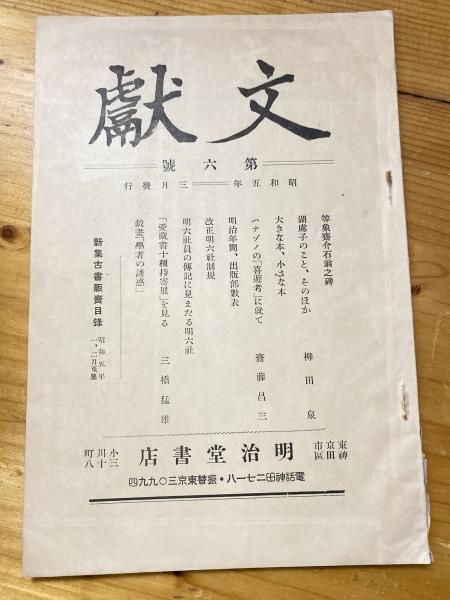 文獻
第六號
昭和五年三月發行
等象齋介石翁之碑
湖處子のこと、そのほか 柳田泉
大きな本、小さな本
ハナゾノの「喜遊考」に就て 齋藤昌三
明治年間、出版部數表
改正明六社制規
明六社員の傳記に見えたる明六社
「愛藏書十種持寄展」を見る 三橋猛雄
戯畫「學者の誘惑」
新集古書販賣目錄 昭和五年一、二月蒐集
東京市神田區
明治堂書店
小川町三十八
電話神田二七一八・振替東京三〇九九四